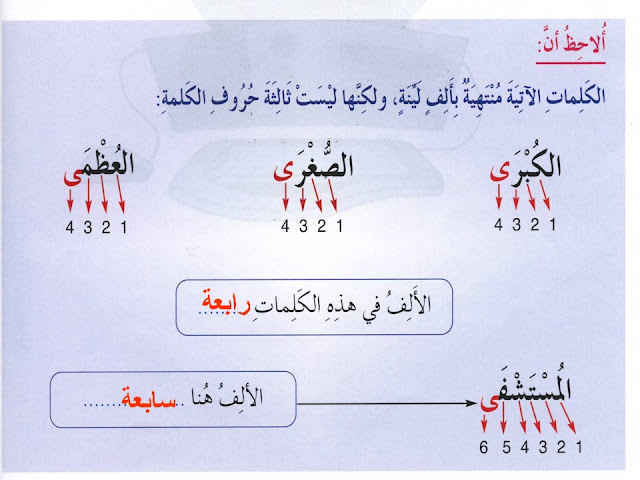 أُلاحِظُ أنَّ:
الكَلِمات الآتِيَةَ مُنْتَهِيَةٌ بِأَلِفٍ لَيِّنَةٍ، ولكِنَّها لَيْسَتْ ثَالِثَةَ حُرُوفِ الكَلمةِ:
الكُبْرَى الصُّغْرَى العُظْمَى
4 3 2 1 4 3 2 1 4 3 2 1
الأَلِفُ في هذِهِ الكَلِماتِ رابعة
المُسْتَشْفَى الألِفُ هُنا سابعة
6 5 4 3 2 1